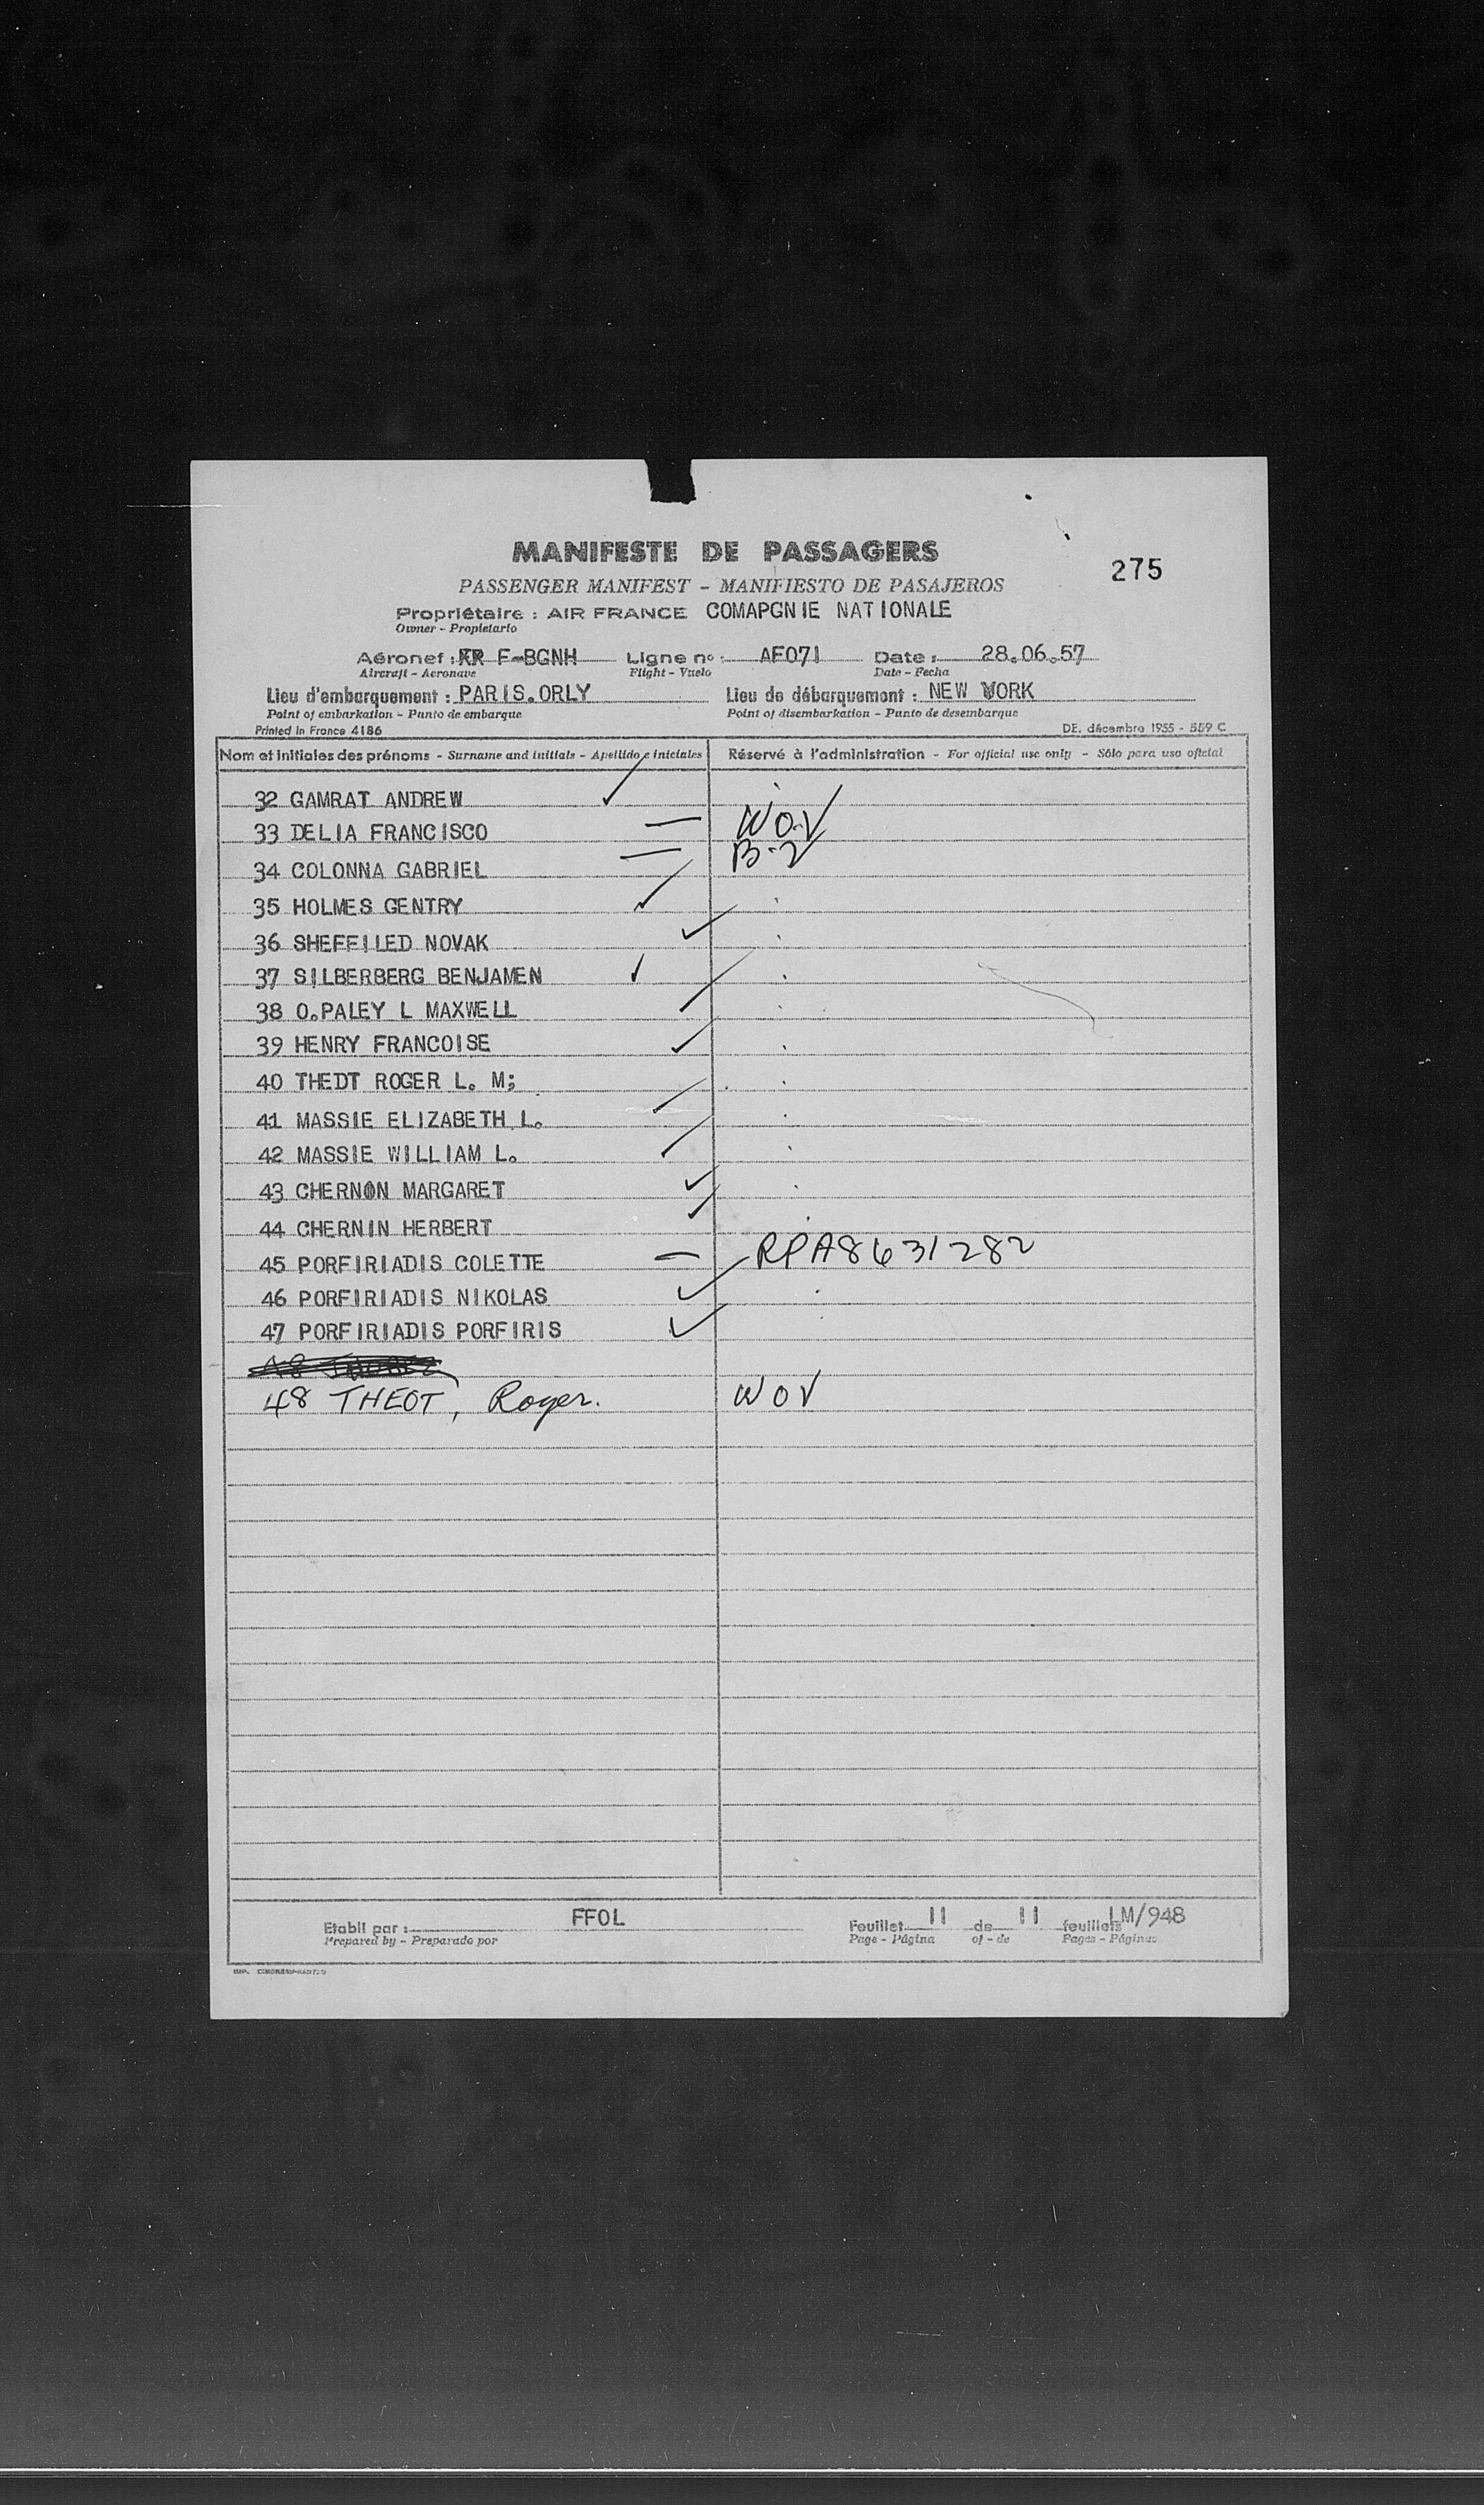 MANIFESTE DE PASSAGERS
275
PASSENGER MANIFEST - MANIFIESTO DE PASAJEROS
Propriétaire : AIR FRANCE COMAPGNIE NATIONALE
Owner - Propietario
Aéronef : F-BGNH Ligne no : AF071 Date : 28.06.57
Aircraft - Aeronave Flight - Vuelo Date - Fecha
Lieu d'embarquement : PARIS.ORLY Lieu de débarquement : NEW YORK
Point of embarkation - Punto de embarque Point of disembarkation - Punto de desembarque
Printed in France 4186 DE. décembre 1955 - 559 C
Nom et initiales des prénoms - Surname and initials - Apellido e iniciales Réservé à l'administration - For official use only - Sólo para uso oficial
32 GAMRAT ANDREW
33 DELIA FRANCISCO WOV
34 COLONNA GABRIEL B-2
35 HOLMES GENTRY
36 SHEFFILED NOVAK
37 SILBERBERG BENJAMEN
38 O.PALEY L MAXWELL
39 HENRY FRANCOISE
40 THEDT ROGER L. M;
41 MASSIE ELIZABETH L.
42 MASSIE WILLIAM L.
43 CHERNON MARGARET
44 CHERNIN HERBERT
45 PORFIRIADIS COLETTE RPA8631282
46 PORFIRIADIS NIKOLAS
47 PORFIRIADIS PORFIRIS
48 THEOT, Roger. WOV
Etabli par : FFOL Feuillet 11 de 11 feuillets LM/948
Prepared by - Preparado por Page - Página of - de Pages - Páginas